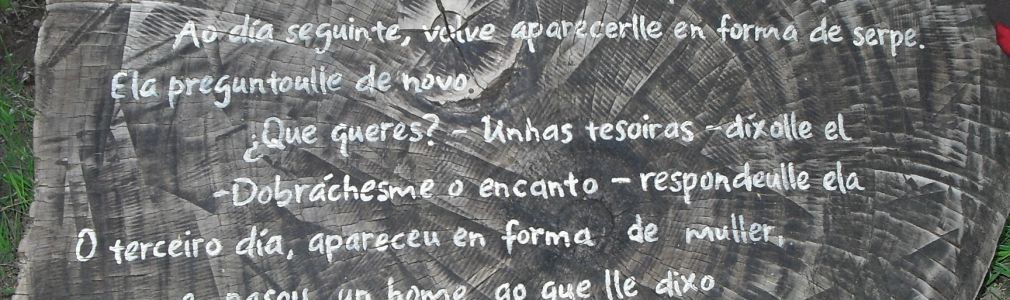 Ao día seguinte, volve aparecerlle en forma de serpe.
Ela preguntoulle de novo.
¿Que queres? - Unhas tesoiras -díxolle el
-Dobráchesme o encanto - respondeulle ela
O terceiro día, apareceu en forma de muller,
e pasou un home ao que lle dixo